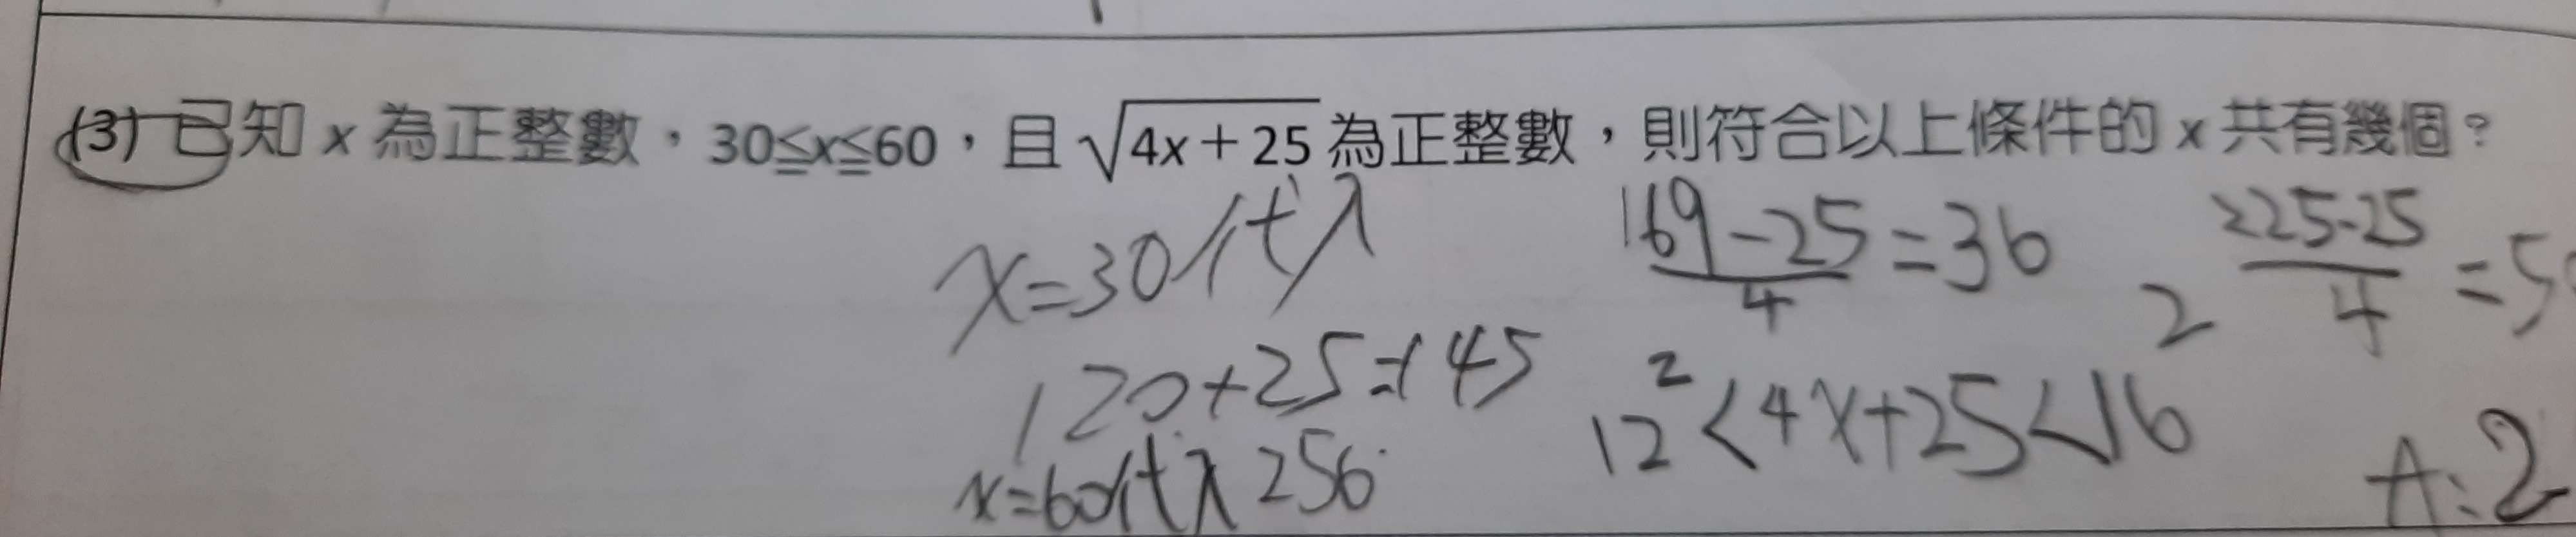 (3) 已知 x 為正整數，30≦x≦60，且 √4x+25 為正整數，則符合以上條件的 x 共有幾個？
x=30代入
120+25=145
x=60代入 256
169-25/4=36
12²<4x+25<16²
225-25/4=5
A:2